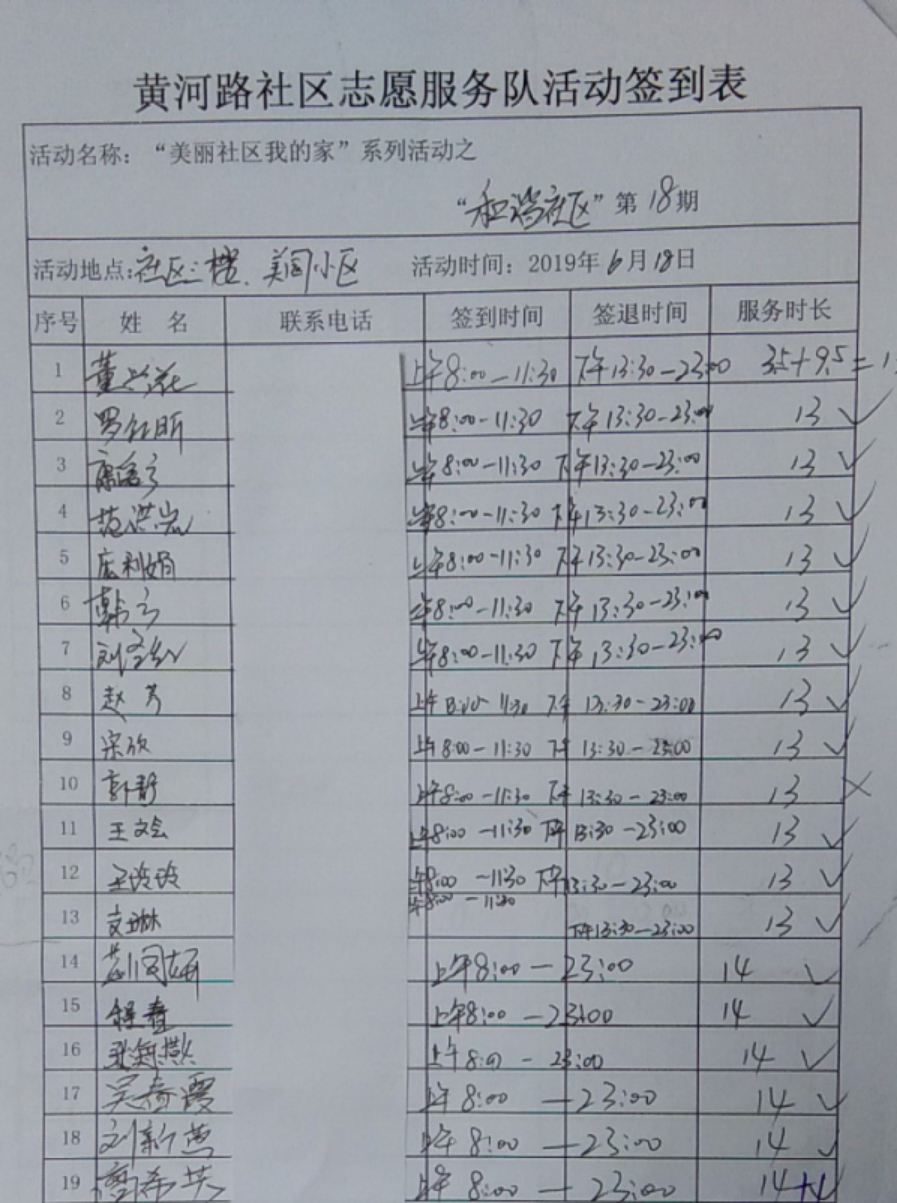 黄河路社区志愿服务队活动签到表
活动名称：“美丽社区我的家”系列活动之
“和谐社区”第18期
活动地点:社区二楼、美阁小区 活动时间：2019年6月18日
序号 姓 名 联系电话 签到时间 签退时间 服务时长
1 董兴花 上午8:00-11:30 下午13:30-23:00 3.5+9.5=1
2 罗红昕 上午8:00-11:30 下午13:30-23:00 13 ✓
3 上午8:00-11:30 下午13:30-23:00 13 ✓
4 范洪宏 上午8:00-11:30 下午13:30-23:00 13 ✓
5 利娟 上午8:00-11:30 下午13:30-23:00 13 ✓
6 韩 上午8:00-11:30 下午13:30-23:00 13 ✓
7 刘 上午8:00-11:30 下午13:30-23:00 13 ✓
8 赵芳 上午8:00-11:30 下午 13:30-23:00 13 ✓
9 宋欣 上午8:00-11:30 下午 13:30-23:00 13 ✓
10 郭静 上午8:00-11:30 下午 13:30-23:00 13 ×
11 王文会 上午8:00-11:30 下午 13:30-23:00 13 ✓
12 王玲玲 上午8:00-11:30 下午13:30-23:00 13 ✓
13 文琳 上午8:00-11:30 下午13:30-23:00 13 ✓
14 上午8:00-23:00 14 ✓
15 程春 上午8:00-23:00 14 ✓
16 海燕 上午8:00-23:00 14 ✓
17 吴春霞 上午8:00-23:00 14 ✓
18 刘新燕 上午8:00-23:00 14 ✓
19 希英 上午8:00-23:00 14+1